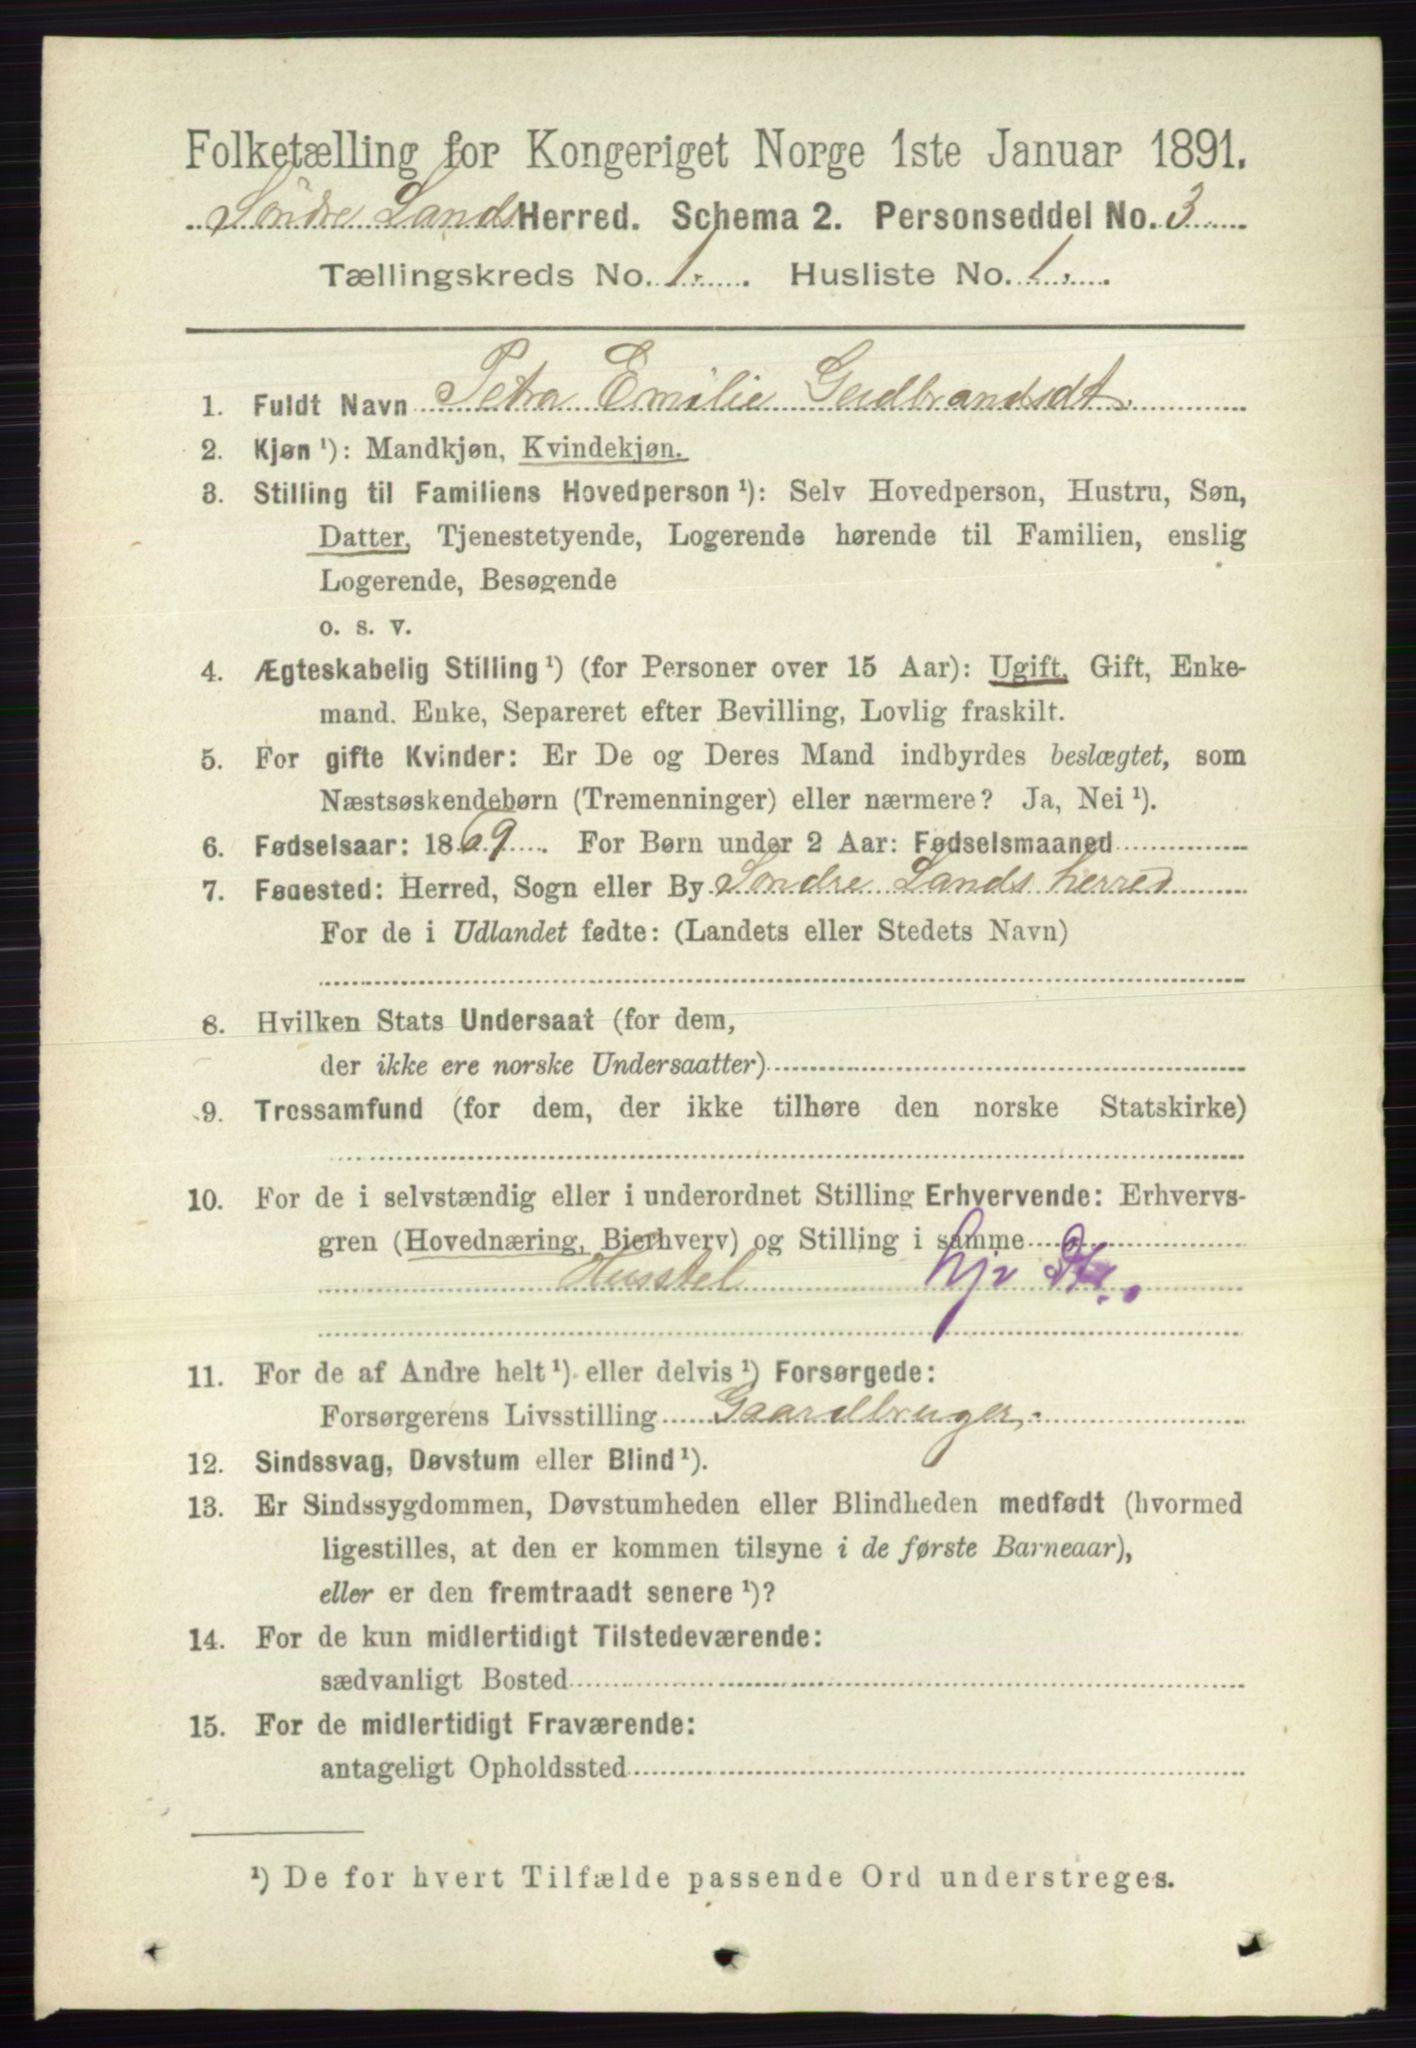 Folketælling for Kongeriget Norge 1ste Januar 1891.
Søndre Lands Herred. Schema 2. Personseddel No. 3
Tællingskreds No. 1. Husliste No. 1.
1. Fuldt Navn Petra Emilie Gudbrandsdt.
2. Kjøn ¹): Mandkjøn, Kvindekjøn.
3. Stilling til Familiens Hovedperson ¹): Selv Hovedperson, Hustru, Søn,
Datter, Tjenestetyende, Logerende hørende til Familien, enslig
Logerende, Besøgende
o. s. v.
4. Ægteskabelig Stilling ¹) (for Personer over 15 Aar): Ugift, Gift, Enke-
mand. Enke, Separeret efter Bevilling, Lovlig fraskilt.
5. For gifte Kvinder: Er De og Deres Mand indbyrdes beslægtet, som
Næstsøskendebørn (Tremenninger) eller nærmere? Ja, Nei ¹).
6. Fødselsaar: 1869. For Børn under 2 Aar: Fødselsmaaned
7. Fødested: Herred, Sogn eller By Søndre Lands herred
For de i Udlandet fødte: (Landets eller Stedets Navn)
8. Hvilken Stats Undersaat (for dem,
der ikke ere norske Undersaatter)
9. Trossamfund (for dem, der ikke tilhøre den norske Statskirke)
10. For de i selvstændig eller i underordnet Stilling Erhvervende: Erhvervs-
gren (Hovednæring, Bierhverv) og Stilling i samme
Husstel hjv
11. For de af Andre helt ¹) eller delvis ¹) Forsørgede:
Forsørgerens Livsstilling Gaardbruger.
12. Sindssvag, Døvstum eller Blind ¹).
13. Er Sindssygdommen, Døvstumheden eller Blindheden medfødt (hvormed
ligestilles, at den er kommen tilsyne i de første Barneaar),
eller er den fremtraadt senere ¹)?
14. For de kun midlertidigt Tilstedeværende:
sædvanligt Bosted
15. For de midlertidigt Fraværende:
antageligt Opholdssted
¹) De for hvert Tilfælde passende Ord understreges.